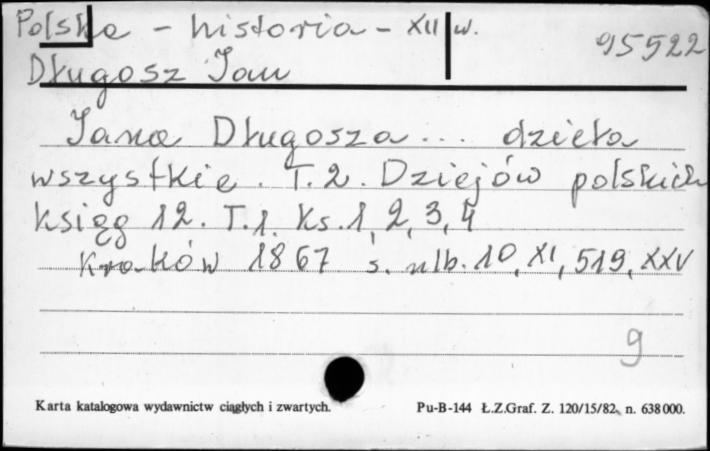 Polska - historia - XII w.
95522
Długosz Jan
Jana Długosza... dzieła
wszystkie. T.2. Dziejów polskich
ksiąg 12. T.1. Ks. 1, 2, 3, 4
Kraków 1867 s. nlb. 10, XI, 519, XXV
9
Karta katalogowa wydawnictw ciągłych i zwartych.
Pu-B-144 Ł.Z.Graf. Z. 120/15/82, n. 638000.